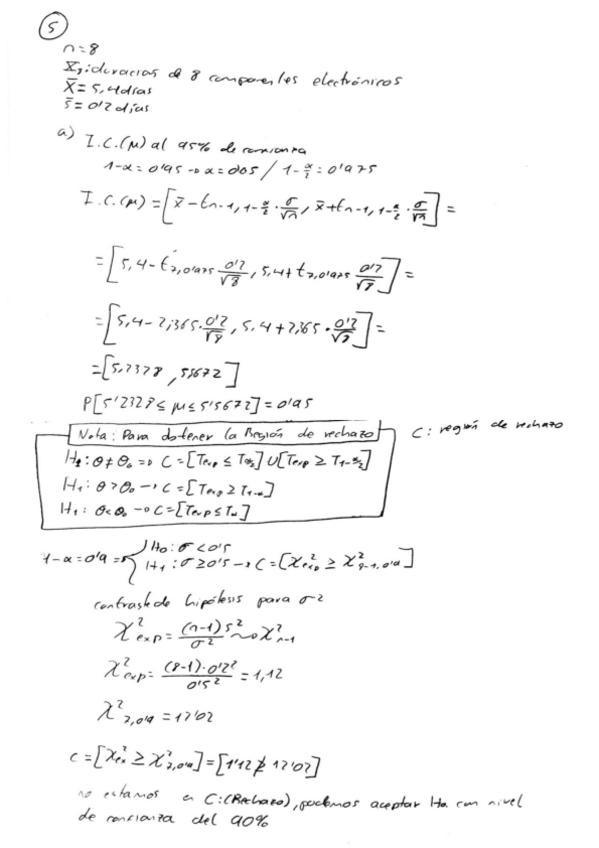 5
n=8
X; : duracias d 8 componentes electrónicos
X̄ = 5,4 días
s̄ = 0'2 días
a) I.C.(μ) al 95% de confianza
1-α = 0'95 → α = 0'05 / 1-α/2 = 0'975
I.C.(μ) = [x̄ - t n-1, 1-α/2 · σ/√n, x̄ + t n-1, 1-α/2 · σ/√n] =
= [5,4 - t 7,0'975 0'2/√8, 5,4 + t 7,0'975 0'2/√8] =
= [5,4 - 2,365 · 0'2/√8, 5,4 + 2,365 · 0'2/√8] =
= [5,2328, 5,5672]
P[5'2328 ≤ μ ≤ 5'5672] = 0'95
Nota: Para obtener la Región de rechazo
C: región de rechazo
H₁: θ ≠ θ₀ => C = [Texp ≤ Tα/2] U [Texp ≥ T1-α/2]
H₁: θ > θ₀ → C = [Texp ≥ T1-α]
H₁: θ < θ₀ → C = [Texp ≤ Tα]
1-α = 0'9 => { H₀: σ < 0'5
H₁: σ ≥ 0'5 → C = [χ²exp ≥ χ²8-1,0'9]
contraste de hipótesis para σ²
χ²exp = (n-1)s²/σ² ~ χ²n-1
χ²exp = (8-1)·0'2²/0'5² = 1,12
χ²7,0'9 = 12'02
C = [χ²ex ≥ χ²7,0'9] = [1'12 ≱ 12'02]
no estamos en C: (Rechazo), podemos aceptar Ho con nivel
de confianza del 90%